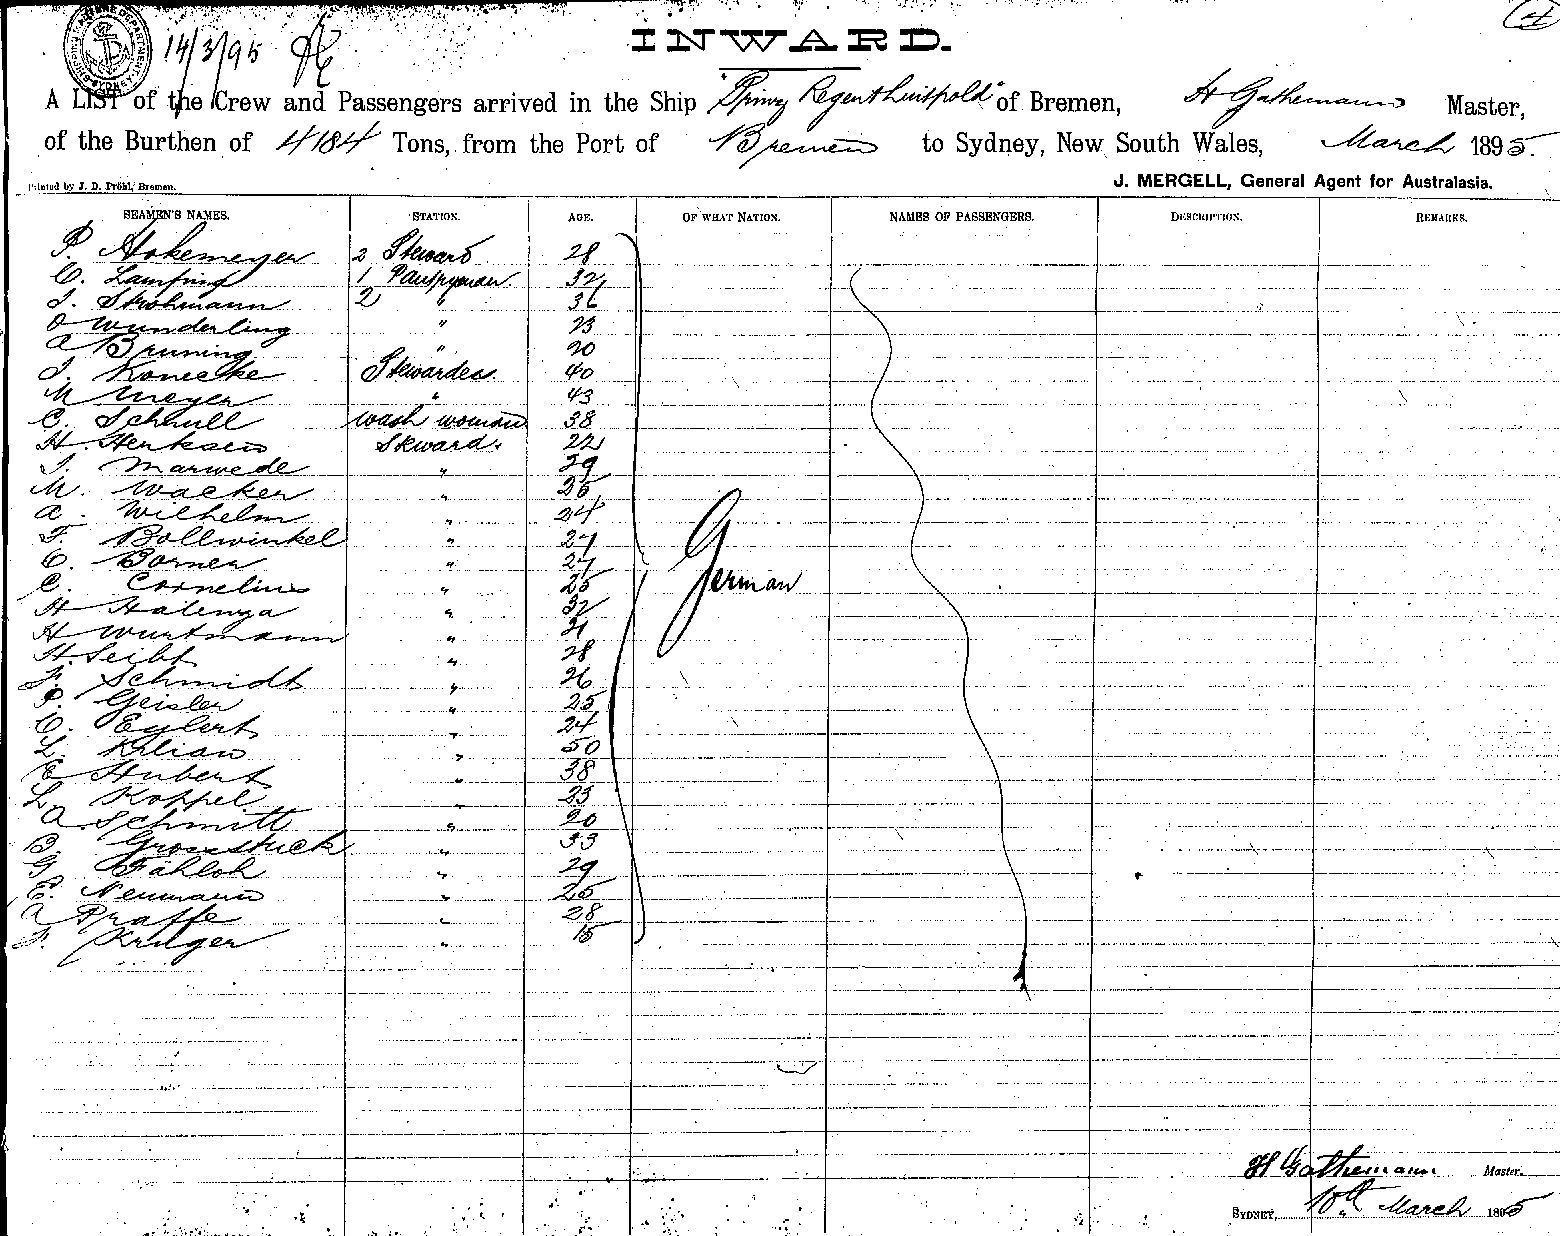 14/3/95
INWARD.
A LIST of the Crew and Passengers arrived in the Ship "Prinz Regent Luitpold" of Bremen, H Gathemann Master,
of the Burthen of 4184 Tons, from the Port of Bremen to Sydney, New South Wales, March 1895.
Printed by J. D. Pröhl, Bremen.
J. MERGELL, General Agent for Australasia.
SEAMEN'S NAMES. STATION. AGE. OF WHAT NATION. NAMES OF PASSENGERS. DESCRIPTION. REMARKS.
P. Stokemeyer 2 Steward 28
C. Lamping 1 Pantryman 32
J. Strohmann 2 " 36
O Wunderling " 23
A Bruning " 20
J. Konecke Stewardes. 40
M Meyer " 43
C. Schrull wash woman 38
H. Henksen Steward. 22
J. Marwede " 29
M. Wacker " 25
A. Wilhelm " 24
F. Bollwinkel " 27
C. Borner " 27
C. Cornelius " 25
H Halenga " 32
H Wurtmann " 21
H. Seibt " 28
F. Schmidt " 26
P. Geisler " 25
O. Eylert " 24
L. Kilian " 50
E Hubert " 38
L. Koppel " 23
A. Schmitt " 20
B. Grosstuck " 33
G. Fahloh " 29
E. Neumann " 25
A Pfaffe " 28
F. Kruger " 15
German
H Gathemann Master.
SYDNEY, 10th March 1895